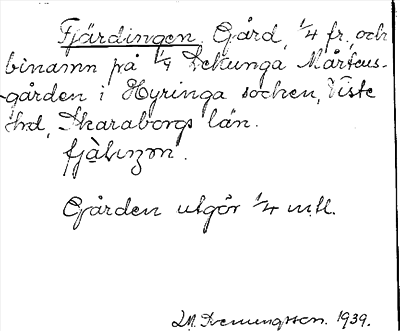 Fjärdingen. Gård, 1/4 fr. och
binamn på 1/4 Sekunga Mårtens-
gården i Hyringa socken, Viste
hrd, Skaraborgs län.
Gården utgör 1/4 mtl.
1939.